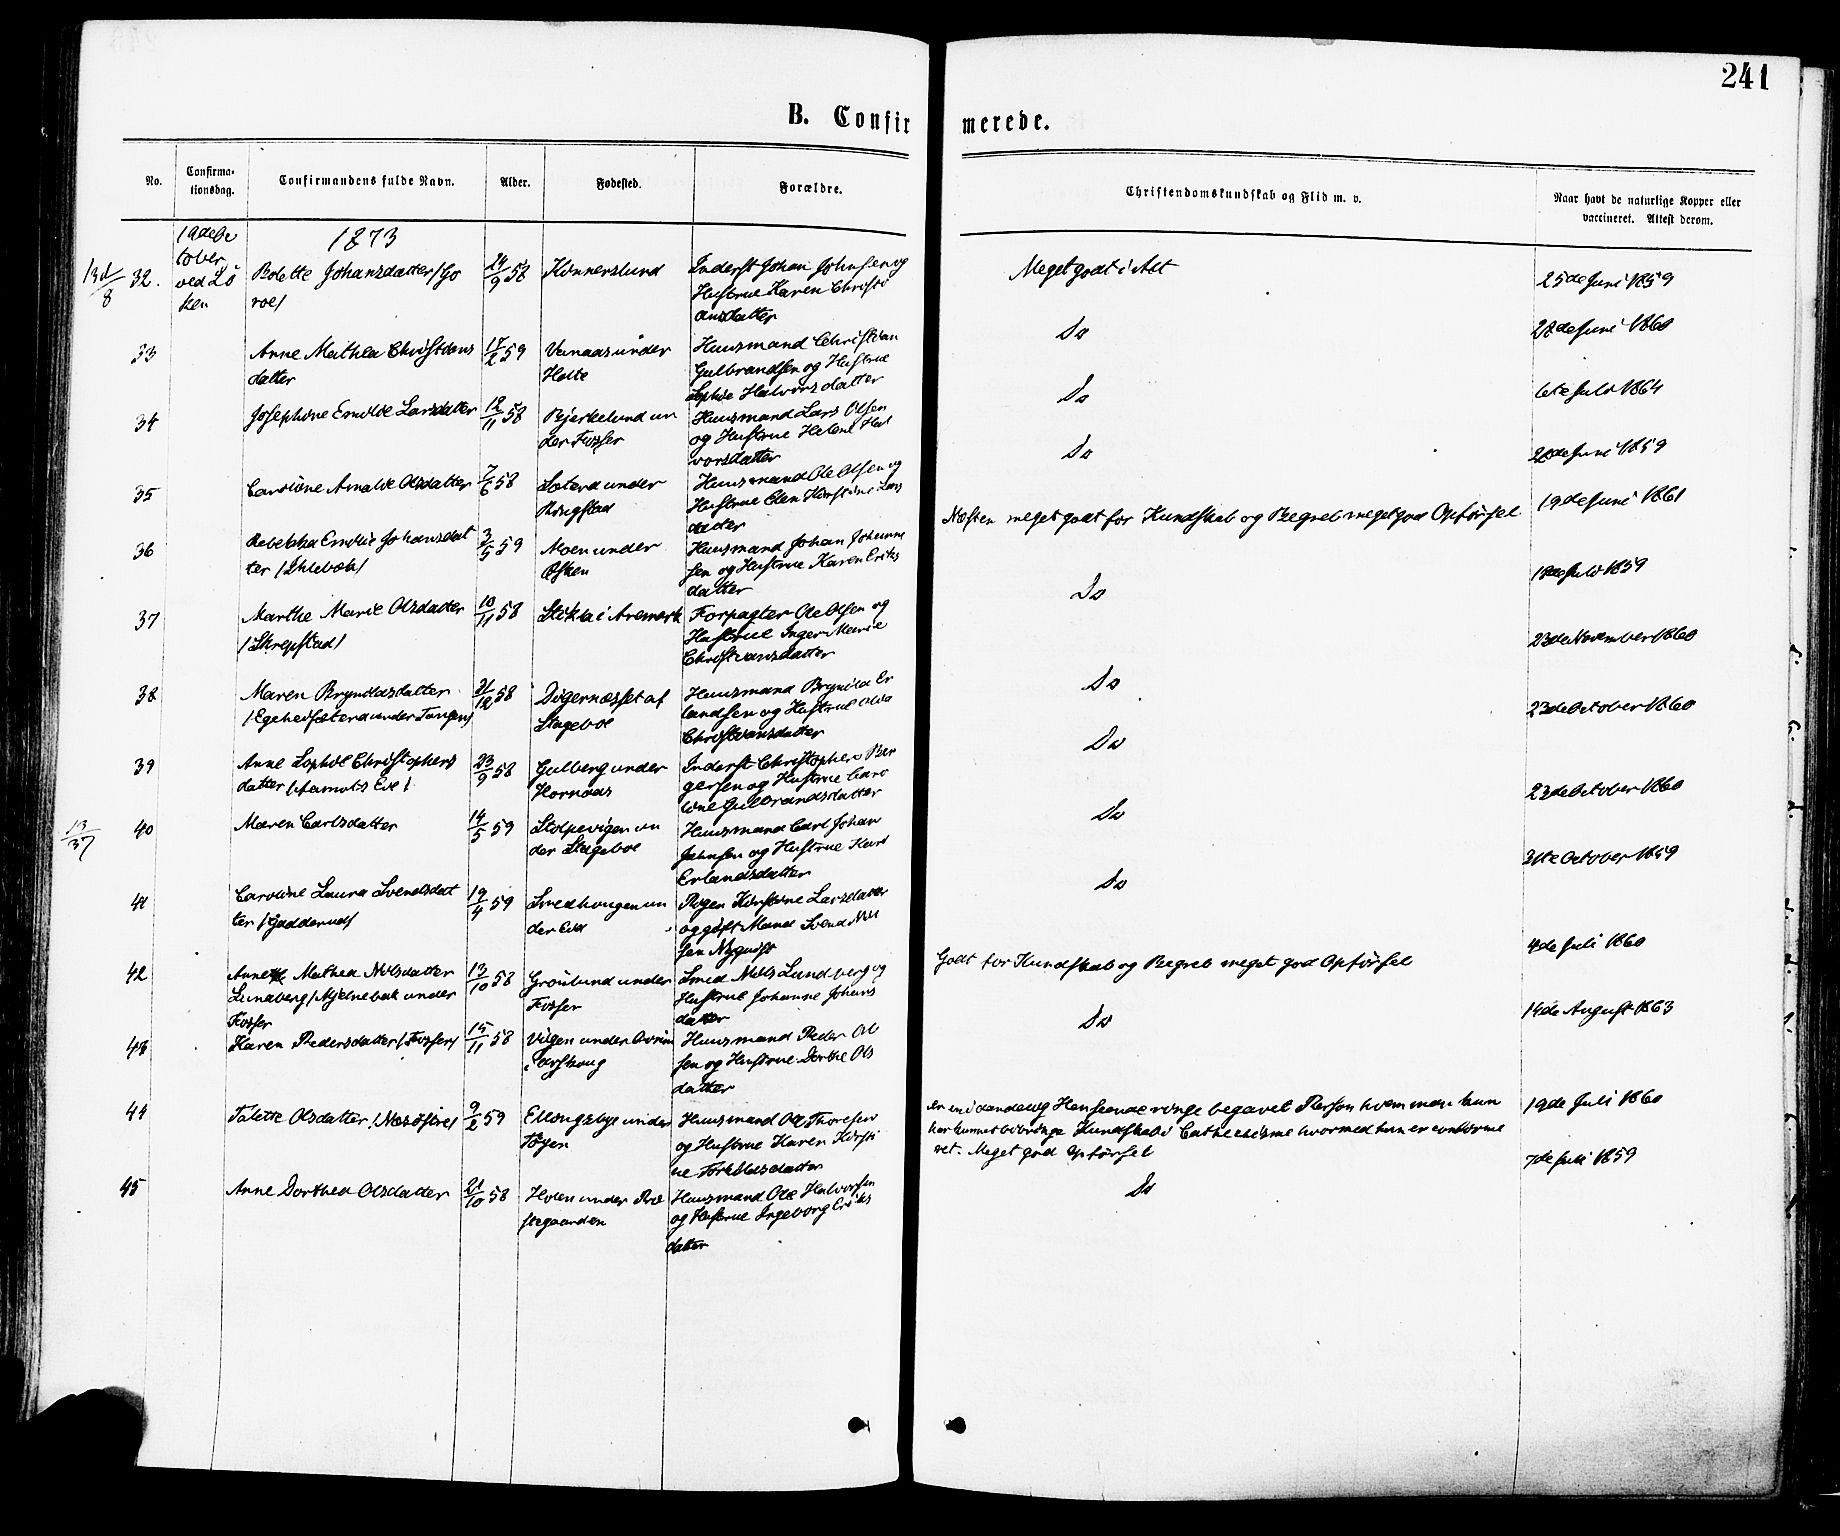 241
B. Confirmerede.
No.
Confirmationsdag.
Confirmandens fulde Navn.
Alder.
Fødested.
Forældre.
Christendomskundskab og Flid m. v.
Naar havt de naturlige Kopper eller
vaccineret. Attest derom.
1873
19de October ved Löken
32. Bolette Johansdatter
24/9 58
Kinnerslund
Inderst Johan Johnsen og
Hustrue Karen Christi
ansdatter
Meget godt i Alt
25de Juni 1859
33 Anne Mathea Christians
datter
17/2 59
under
Holte
Huusmand Christian
Gulbrandsen og Hustrue
Sophie Halvorsdatter
Do
28de Juni 1860
34 Josephine Emilie Larsdatter
18/11 58
Bjerkelund un
der Fosser
Huusmand Lars Olsen
og Hustrue Helene Hal
vorsdatter
Do
6te Juli 1864
35 Caroline Amalie Olsdatter
7/6 58
Sæterd under
Ringstad
Huusmand Ole Olsen og
Hustrue Elen Kirstine Lars
datter
Do
28de Juni 1859
36 Rebekka Emilie Johansdat
ter
3/5 59
Moen under
Huusmand Johan Johanne
sen og Hustrue Karen Eriks
datter
Næsten meget godt for Kundskab og Begreb meget god Opførsel
19de Juni 1861
37 Marthe Marie Olsdatter
/Skrepstad/
10/11 58
Stikla i Aremark
Forpagter Ole Olsen og
Hustrue Inger Marie
Christiansdatter
Do
18de Juli 1859
38 Maren Brynildsdatter
31/12 58
Digernæsset af
Stageboe
Huusmand Brynild Er
landsen og Hustrue
Christiansdatter
Do
23de November 1860
39 Anne Sophie Christophers
datter
23/9 58
Gulberg under
Hornaas
Inderst Christopher Bør
gersen og Hustrue Caro
line Gulbrandsdatter
Do
23de October 1860
40 Maren Carlsdatter
14/5 59
Stolpevigen un
der Stageboe
Huusmand Carl Johan
Johnsen og Hustrue Kari
Erlandsdatter
Do
23de October 1860
41 Caroline Laura Svendsdat
ter
19/4 59
Smedhaugen un
der Eid
Pigen Kirstine Larsdatter
og gift Mand Svend Nil
sen Nyquist
Do
31te October 1859
42 Mathea Nilsdatter
Lundberg under
Fosser
13/10 58
Grönlund under
Fosser
Smed Nils Lundberg og
Hustrue Johanne Johans
datter
Godt for Kundskab og Begreb meget god Opførsel
4de Juli 1860
43 Karen Pedersdatter /Fosser/
15/11 58
Vigen under
Huusmand Peder Ol
sen og Hustrue Dorthe Ols
datter
Do
14de August 1863
44 Talette Olsdatter
9/2 59
under
Töyen
Huusmand Ole Thoresen
og Hustrue Karen Kirsti
ne Torkildsdatter
Er en i aandelig Henseende ringe begavet Person hvem man kun
har kunnet bibringe Kundskab i Cathechisme hvormed hun er confirme
ret. Meget god Opførsel
19de Juli 1860
45 Anne Dorthea Olsdatter
21/10 58
Holen under Præ
stegaarden
Huusmand Ole Halvorsen
og Hustrue Ingeborg Eriks
datter
Do
7de Juli 1859